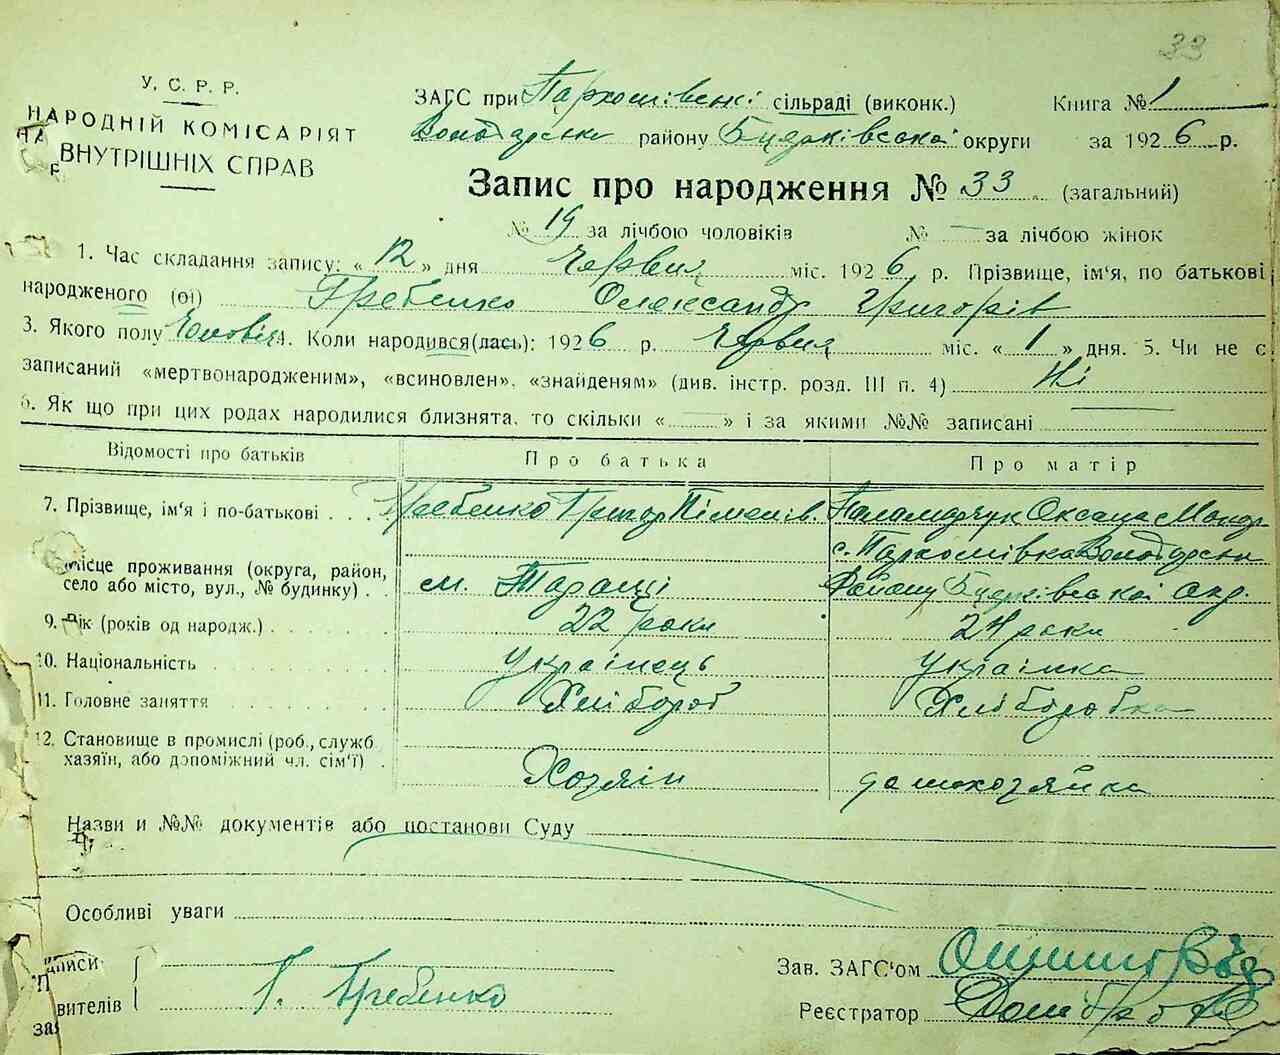 33
У. С. Р. Р.
НАРОДНІЙ КОМІСАРІЯТ
ВНУТРІШНІХ СПРАВ
ЗАГС при Пархомівські сільраді (виконк.) Книга № 1
Володарськ району Бцерківської округи за 1926 р.
Запис про народження № 33 (загальний)
№ 19 за лічбою чоловіків № — за лічбою жінок
1. Час складання запису: « 12 » дня Червня міс. 1926 р. Прізвище, ім'я, по батькові
народженого (ої) Гребенко Олександр Григорів
3. Якого полу Чоловіч 4. Коли народився(лась): 1926 р. Червня міс. « 1 » дня. 5. Чи не є
записаний «мертвонародженим», «всиновлен», «знайденям» (див. інстр. розд. III п. 4) Ні
6. Як що при цих родах народилися близнята, то скільки « » і за якими №№ записані
Відомості про батьків Про батька Про матір
7. Прізвище, ім'я і по-батькові Гребенко Григор Піменів. Паламарчук Оксана
с. Пархомівка Володарськ
Місце проживання (округа, район,
село або місто, вул., № будинку) м. Таращі Району Бцерківської окр.
9. Вік (років од народж.) 22 роки 24 роки
10. Національність Українець Українка
11. Головне заняття Хлібороб Хліборобка
12. Становище в промислі (роб., служб
хазяїн, або допоміжний чл. сім'ї) Хозяїн домохозяйка
Назви и №№ документів або постанови Суду
Особливі уваги
Підписи
заявителів Г. Гребенко
Зав. ЗАГС'ом
Реєстратор